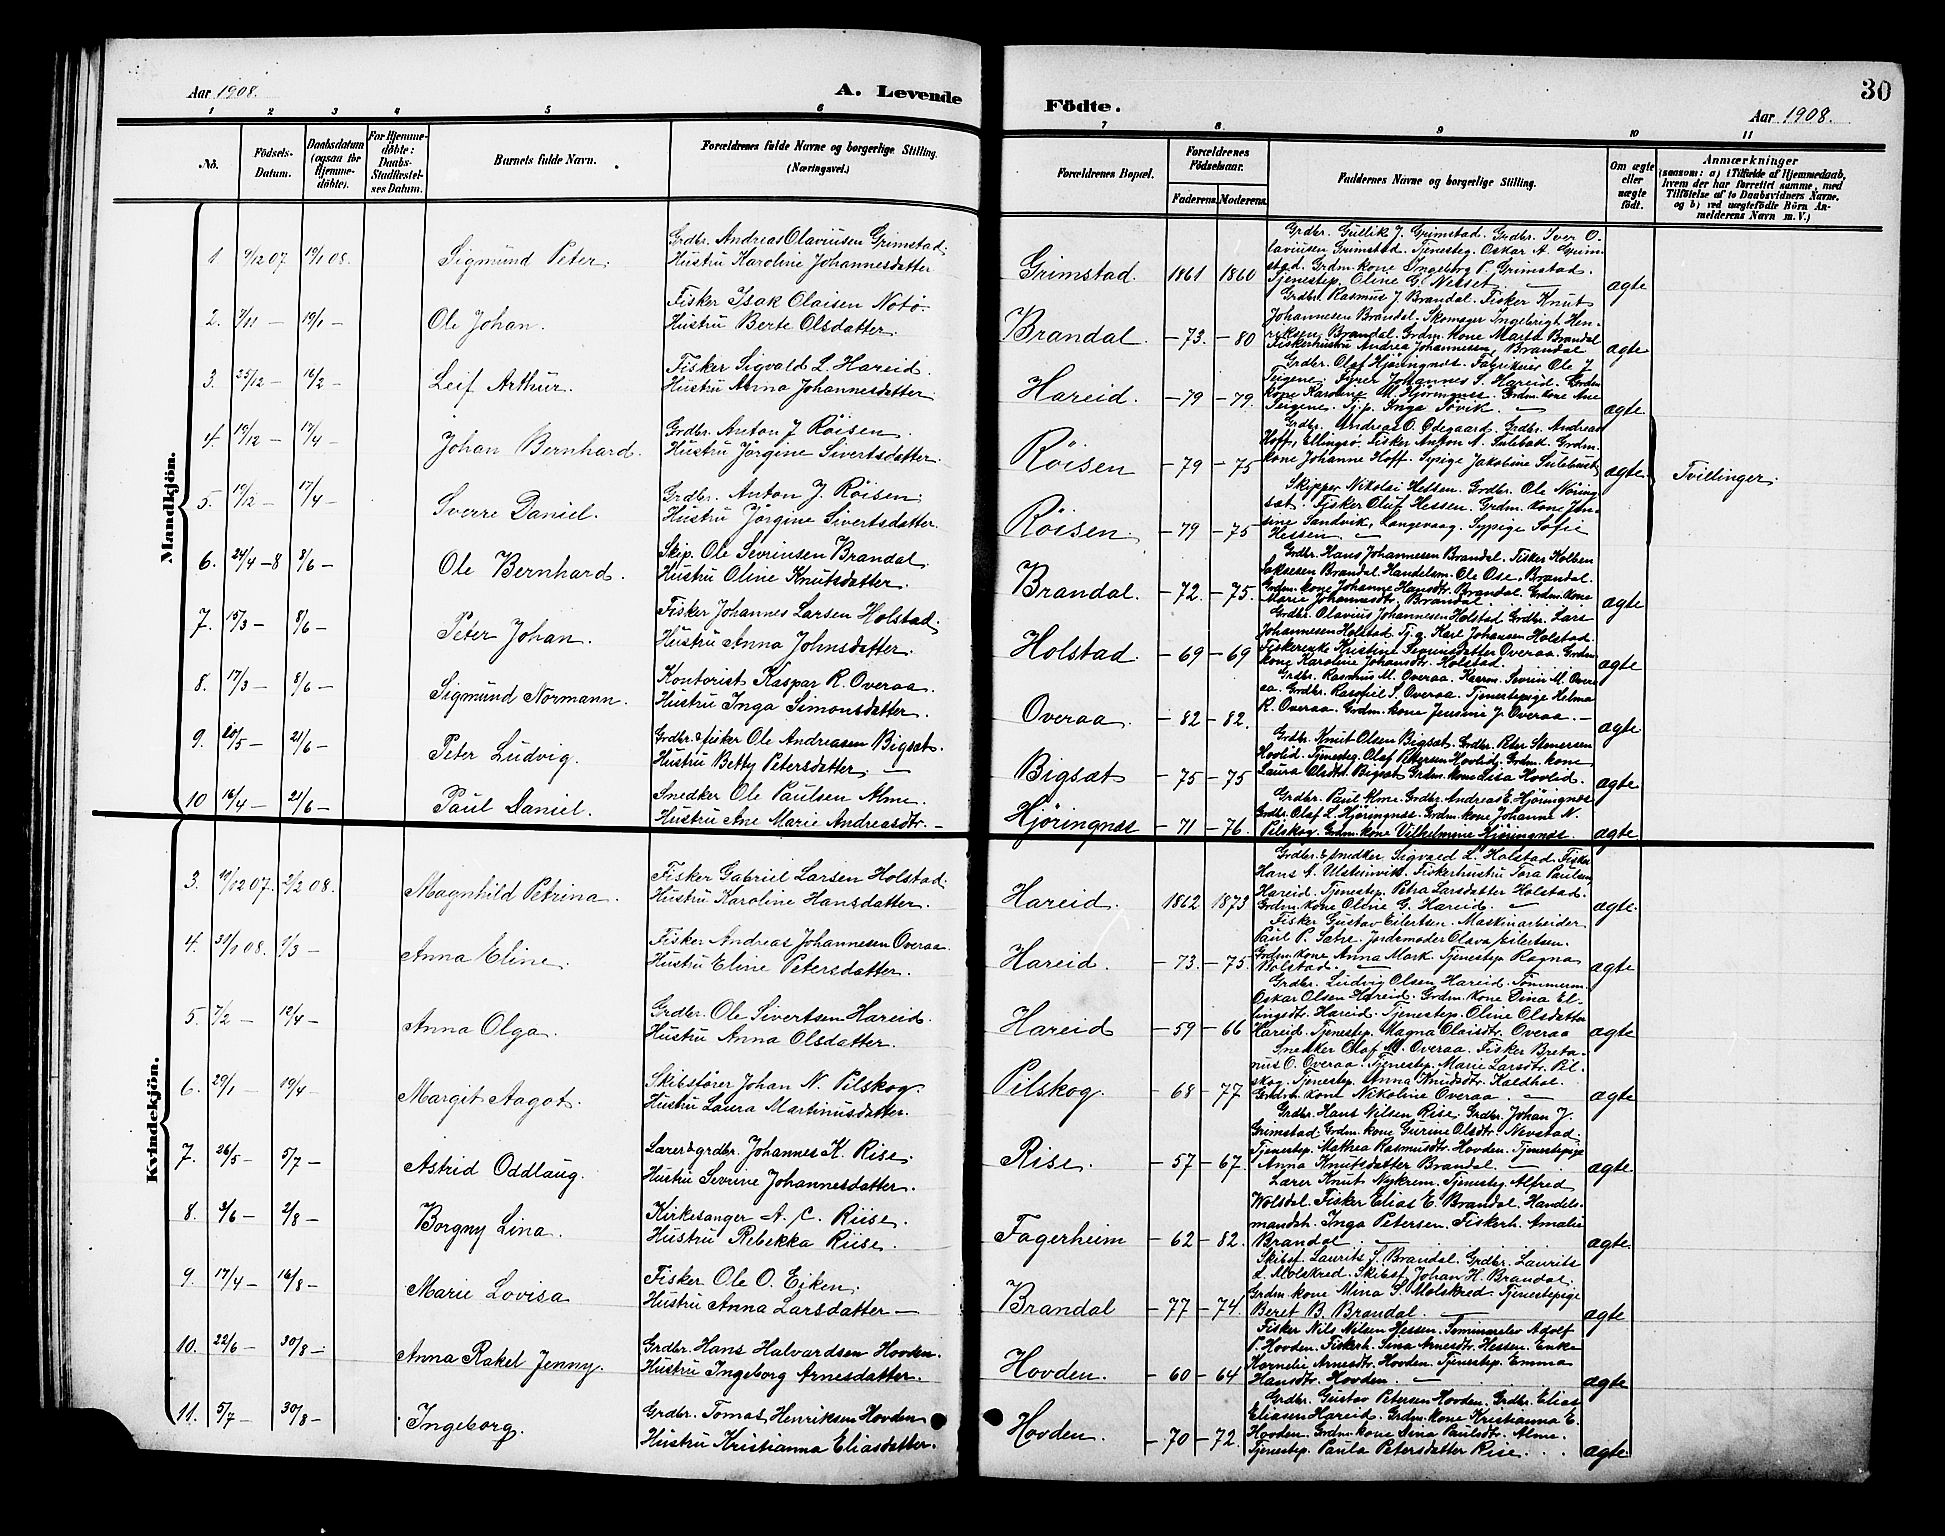 Aar 1908.
A. Levende
Födte.
30
Aar 1908.
1 2 3 4 5 6 7 8 9 10 11
No.
Födsels-Datum.
Daabsdatum (ogsaa for Hjemme-döbte).
For Hjemme-döbte: Daabs-Stadfæstel-ses Datum.
Barnets fulde Navn.
Forældrenes fulde Navne og borgerlige Stilling. (Næringsvei.)
Forældrenes Bopæl.
Forældrenes Födselsaar.
Faderens. Moderens.
Faddernes Navne og borgerlige Stilling.
Om ægte eller uægte födt.
Anmærkninger
(saasom: a) i Tilfælde af Hjemmedaab,
hvem der har forrettet samme, med
Tilföielse af to Daabsvidners Navne.
og b) ved uægtefödte Börn An-
melderens Navn m. V.)
Mandkjön.
1 9/12 07 19/1 08. Sigmund Peter.
Grdbr. Andreas Olaviusen Grimstad.
Hustru Karoline Johannesdatter
Grimstad. 1861 1860
Grdbr. Gullik J. Grimstad. Grdbr. Iver O-
laviusen Grimstad. Tjenesteg. Oskar A. Grim-
stad. Grdm.kone Ingeborg P. Grimstad.
Tjenestep. Oline G. Nesset. —
ægte
2. 7/11 — 19/1 — Ole Johan.
Fisker Isak Olaisen Notö.
Hustru Berte Olsdatter.
Brandal. — 73. — 80
Grdbr. Rasmus J. Brandal. Fisker Knut
Johannesen Brandal. Skomager Ingebrigt Hen-
riksen Brandal. Grdm.kone Marta Brandal
Fiskerhustru Andrea Johannesen, Brandal
ægte
3. 25/12 — 16/2 — Leif Arthur.
Fisker Sigvald L. Hareid.
Hustru Anna Johannesdatter.
Hareid. — 79 — 79.
Grdbr. Olaf Hjöringnes. Fabrikeier Ole J.
Teigene. Fyrer Johannes S. Hareid. Grdm
kone Karoline M. Hjöringnes. Grdm.kone Ane
Teigene. Tj.p. Inga Sövik. —
ægte
4. 19/12 — 17/4 — Johan Bernhard.
Grdbr. Anton J. Röisen.
Hustru Jörgine Sivertsdatter.
Röisen — 79 — 75
Grdbr. Andreas O. Ødegaard. Grdbr. Andreas
Hoff, Ellingsö. Fisker Anton A. Sulebak. Grdm.
kone Johanne Hoff. Sypige Jakobine Sulebust
ægte
Tvillinger.
5. 19/12 — 17/4 — Sverre Daniel.
Grdbr. Anton J. Röisen.
Hustru Jörgine Sivertsdatter.
Röisen. — 79 — 75
Skipper Nikolai Hessen. Grdbr. Ole Nöring-
sæt. Fisker Oluf Hessen. Grdm.kone Jen-
sine Sandvik, Langevaag. Sypige Sofie
Hessen —
6. 24/4 — 8 8/6 — Ole Bernhard.
Skip. Ole Sevrinsen Brandal.
Hustru Oline Knutsdatter.
Brandal. — 72. — 75.
Grdbr. Hans Johannesen Brandal. Fisker Kolben
Isaksen Brandal. Handelsm. Ole Ose. Brandal.
Grdm.kone Johanne Hansdtr. Brandal. Grdm.kone
Marie Johannesdtr. Brandal.
ægte
7. 15/3 — 8/6 — Peter Johan.
Fisker Johannes Larsen Holstad.
Hustru Anna Johnsdatter.
Holstad. — 69 — 69
Grdbr. Olavius Johannesen Holstad Grdbr. Lars
Johannesen Holstad. Tj.g. Karl Johansen Holstad.
Fiskerenke Kristine Simensdatter Overaa. Grdm-
kone Karoline Johansdtr. Holstad.
ægte
8. 17/3 — 8/6 — Sigmund Normann.
Kontorist Kaspar R. Overaa.
Hustru Inga Simonsdatter.
Overaa. — 82 — 82.
Grdbr. Rasmus M. Overaa. Kårm. Sevrin M. Over-
aa. Grdbr. Rasmus S. Overaa. Tjenestepige Helma
R. Overaa. Grdm.kone Jensine J. Overaa. —
ægte
9. 20/5 — 21/6 — Peter Ludvig.
Grdbr. & fisker Ole Andreasen Bigset.
Hustru Betty Petersdatter. —
Bigsæt — 75 — 75
Grdbr. Knut Olsen Bigsæt. Grdbr. Peter Stenersen
Hovlid. Tjenesteg. Olaf Pettersen Hovlid. Grdm. kone
Laura Olsdtr. Bigsæt. Grdm.kone Lisa Hovlid.
ægte
10 16/4 — 21/6 — Paul Daniel.
Snedker Ole Paulsen Alme.
Hustru Ane Marie Andreasdtr. —
Hjöringnæs — 71 — 76.
Grdbr. Paul Alme. Grdbr. Andreas E. Hjöringnes
Grdbr. Olaf L. Hjöringnes. Grdm.kone Johanne N.
Pilskog. Grdm.kone Vilhelmine Hjöringnes.
ægte
Kvindekjön.
3. 11/12 07. 2/2 08. Magnhild Petrina.
Fisker Gabriel Larsen Holstad.
Hustru Karoline Hansdatter.
Hareid. 1862 1873
Grdbr. & snedker Sigvald L. Holstad. Fisker
Hans A. Ulsteinvik. Fiskerhustru Tora Paulsen,
Hareid. Tjenestep. Petra Larsdatter Holstad.
Grdm.kone Oline G. Hareid. —
ægte.
4. 31/1 08. 1/3 — Anna Eline.
Fisker Andreas Johannesen Overaa.
Hustru Eline Petersdatter.
Hareid. — 73. — 75.
Fisker Gustav Eilertsen. Maskinarbeider
Paul P. Sætre. Jordemoder Olava Eilertsen.
Grdm.kone Anna Mork. Tjenestep. Ragna
Holstad. —
ægte
5. 7/2 — 12/4 — Anna Olga.
Grdbr. Ole Sivertsen Hareid.
Hustru Anna Olsdatter.
Hareid — 59 — 66
Grdbr. Ludvig Olsen Hareid. Tömmerm.
Oskar Olsen Hareid. Grdm.kone Dina El-
lingsdtr. Hareid. Tjenestep. Oline Olsdatter
Hareid. Tjenestep. Magna Olaisdtr. Overaa
ægte
6. 29/1 — 19/4 — Margit Aagot.
Skibsförer Johan N. Pilskog.
Hustru Laura Martinusdatter.
Pilskog. — 68 — 77
Snedker Olaf M. Overaa. Fisker Breta-
nus O. Overaa. Tjenestep. Marie Larsdtr. Pil-
skog. Tjenestep. Anna Knudsdtr. Kaldhol.
Grdm.kone Nikoline Overaa. —
ægte
7. 26/5 — 5/7 — Astrid Oddlaug.
Lærer & grdbr. Johannes K. Rise.
Hustru Sivrine Johannesdatter.
Rise. — 57 — 67.
Grdbr. Hans Nilsen Rise. Grdbr. Johan J.
Grimstad Grdm.kone Gurine Olsdtr. Nevstad.
Tjenestep. Mathea Rasmusdtr. Hovden. Tjenestepige
Anna Knutsdatter Brandal. —
ægte
8. 3/6 — 2/8 — Borgny Lina.
Kirkesanger A. C. Riise.
Hustru Rebekka Riise.
Fagerheim — 62 — 82.
Lærer Knut Nykrem. Tjenesteg. Alfred
Wolsdal. Fisker Elias E. Brandal. Handels-
mandsh. Inga Petersen. Fiskerh. Amalie
Brandal. —
ægte.
9. 17/4 — 16/8 — Marie Lovisa
Fisker Ole O. Eiken.
Hustru Anna Larsdatter —
Brandal — 77 — 74.
Skibsf. Laurits S. Brandal. Grdbr. Laurits
L. Molskred. Skibsf. Johan H. Brandal.
Grdm.kone Mina S. Molskred. Tjenestepige
Beret B. Brandal. —
ægte
10. 22/6 — 30/8 — Anna Rakel Jenny.
Grdbr. Hans Halvardsen Hovden.
Hustru Ingeborg Arnesdatter.
Hovden. — 60 — 64
Fisker Nils Nilsen Hessen. Seminarelev Adolf
P. Hovden. Fiskerh. Sina Arnesdtr. Hessen. Enke
Kornelie Arnesdtr. Hovden. Tjenestep. Emma
Hansdtr. Hovden. —
ægte
11. 5/7 — 30/8 — Ingeborg.
Grdbr. Tomas Henriksen Hovden
Hustru Kristianna Eliasdatter.
Hovden. — 70 — 72.
Grdbr. Gustav Petersen Hovden. Grdbr. Elias
Eliasen Hareid. Grdm.kone Kristianna E.
Hovden. Grdm.kone Sina Paulsdtr. Alme.
Tjenestep. Paula Petersdatter Rise.
ægte.